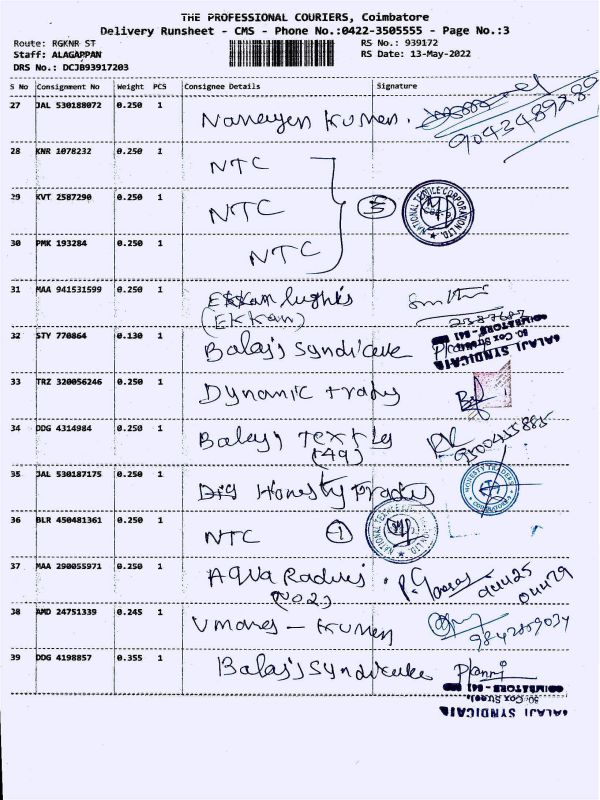 THE PROFESSIONAL COURIERS, Coimbatore
Delivery Runsheet - CMS - Phone No.:0422-3505555 - Page No.:3
Route: RGKNR ST RS No.: 939172
Staff: ALAGAPPAN RS Date: 13-May-2022
DRS No.: DCJB93917203
S No Consignment No Weight PCS Consignee Details Signature
27 JAL 530188072 0.250 1 Narayen Kumen. 9043489289
28 KNR 1078232 0.250 1 NTC
29 KVT 2587290 0.250 1 NTC 3 NATIONAL TEXTILE CORPORATION LTD.
30 PMK 193284 0.250 1 NTC
31 MAA 941531599 0.250 1 Ekkam
(EKKan)
32 STY 770864 0.130 1 Balaji Syndicate BALAJI SYNDICATE
50, Cox Street,
COIMBATORE - 641
33 TRZ 320056246 0.250 1 Dynamic trady
34 DDG 4314984 0.250 1 Balaji Textly
(49)
35 JAL 530187175 0.250 1 Honesty Tradys HONESTY TRADERS COIMBATORE
36 BLR 450481361 0.250 1 NTC 1 NATIONAL TEXTILE LTD.
37 MAA 290055971 0.250 1 Aqua
(NO2)
38 AMD 24751339 0.245 1 Umares - Kumen 9842889034
39 DDG 4198857 0.355 1 Balaji Syndicate
COIMBATORE - 641
50, Cox Street,
BALAJI SYNDICATE